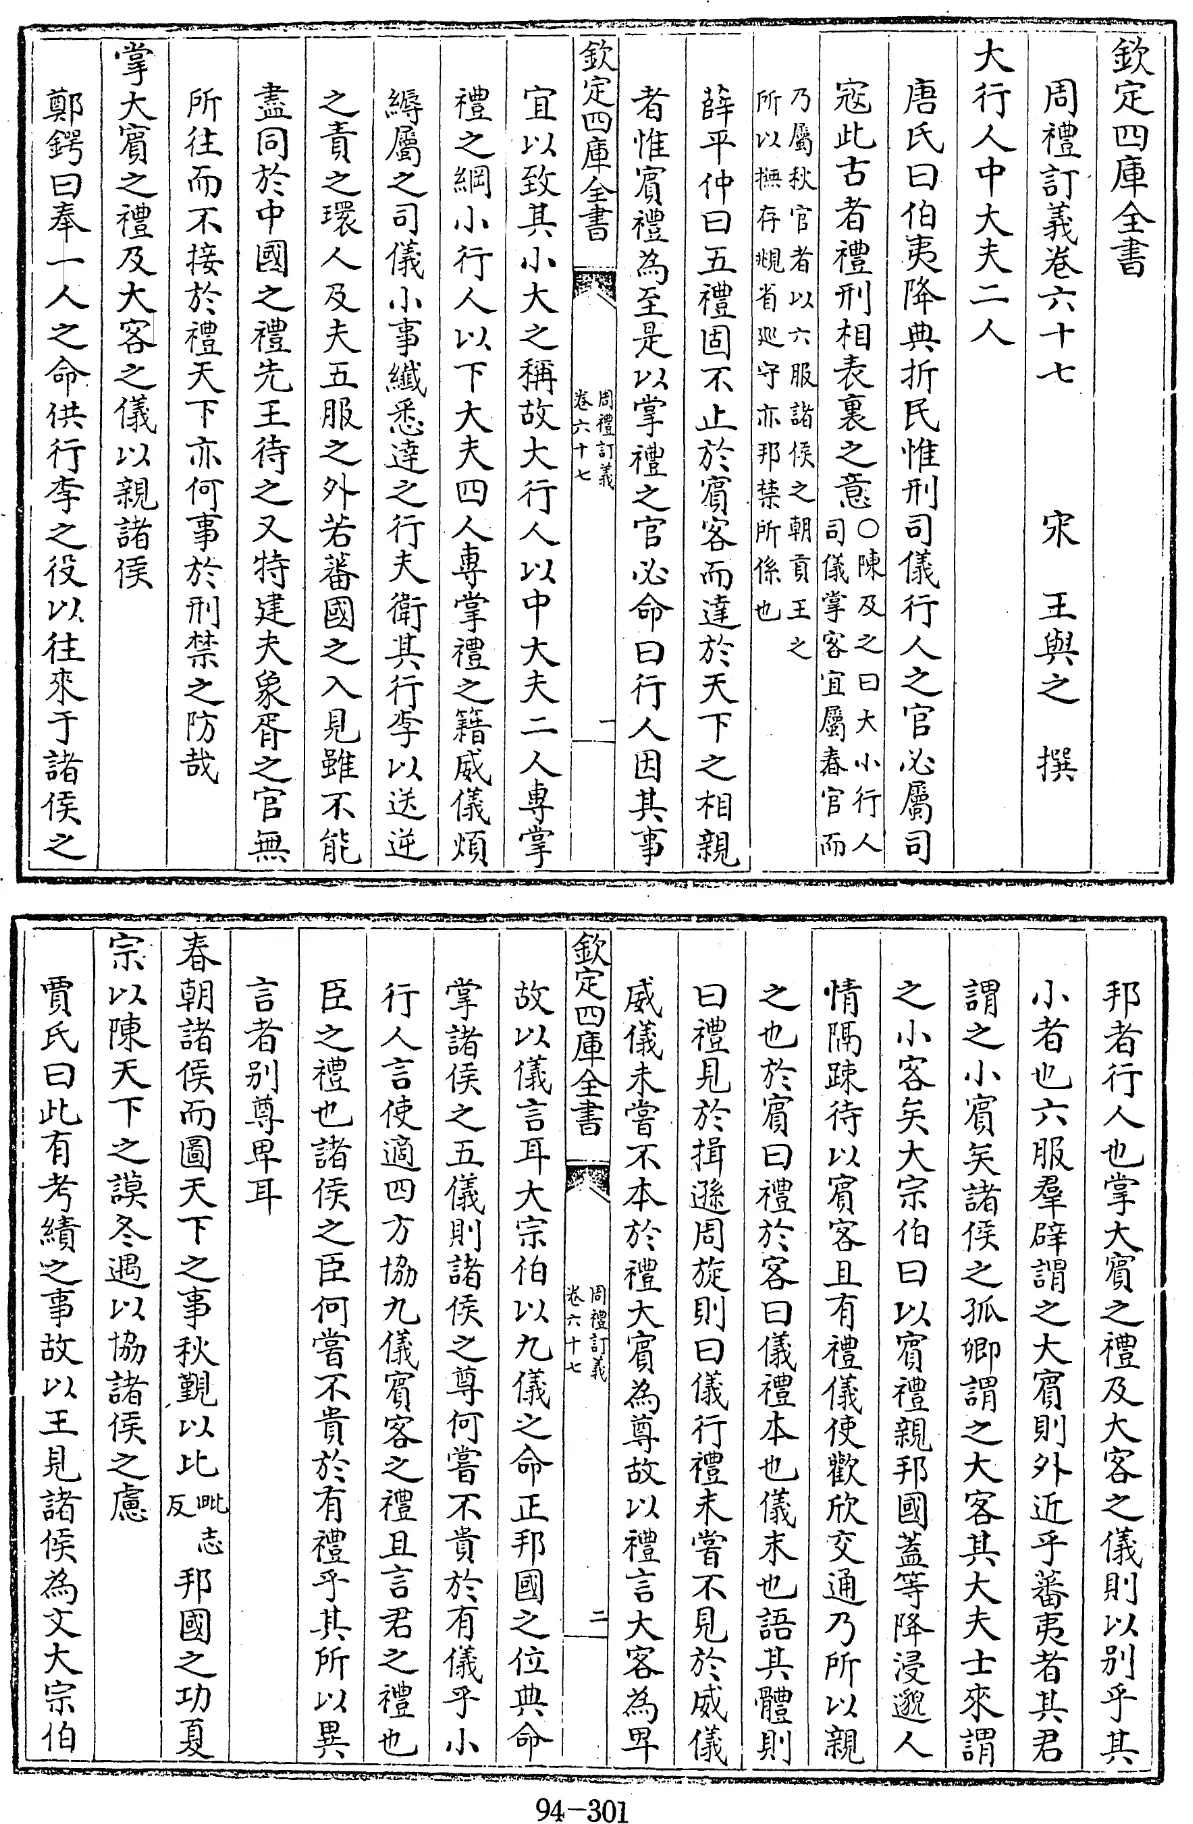 欽定四庫全書
周禮訂義卷六十七　宋　王與之　撰
大行人中大夫二人
唐氏曰伯夷降典折民惟刑司儀行人之官必屬司
寇此古者禮刑相表裏之意○陳及之曰大小行人
司儀掌客宜屬春官而
乃屬秋官者以六服諸侯之朝貢王之
所以撫存覜省巡守亦邦禁所係也
薛平仲曰五禮固不止於賓客而達於天下之相親
者惟賓禮為至是以掌禮之官必命曰行人因其事
欽定四庫全書
周禮訂義
卷六十七
一
宜以致其小大之稱故大行人以中大夫二人專掌
禮之綱小行人以下大夫四人專掌禮之籍威儀煩
縟屬之司儀小事纖悉達之行夫衛其行李以送逆
之責之環人及夫五服之外若蕃國之入見雖不能
盡同於中國之禮先王待之又特建夫象胥之官無
所往而不接於禮天下亦何事於刑禁之防哉
掌大賓之禮及大客之儀以親諸侯
鄭鍔曰奉一人之命供行李之役以往來于諸侯之
邦者行人也掌大賓之禮及大客之儀則以别乎其
小者也六服羣辟謂之大賓則外近乎蕃夷者其君
謂之小賓矣諸侯之孤卿謂之大客其大夫士來謂
之小客矣大宗伯曰以賓禮親邦國蓋等降浸邈人
情隔疎待以賓客且有禮儀使歡欣交通乃所以親
之也於賓曰禮於客曰儀禮本也儀末也語其體則
曰禮見於揖遜周旋則曰儀行禮未嘗不見於威儀
威儀未嘗不本於禮大賓為尊故以禮言大客為卑
欽定四庫全書
周禮訂義
卷六十七
二
故以儀言耳大宗伯以九儀之命正邦國之位典命
掌諸侯之五儀則諸侯之尊何嘗不貴於有儀乎小
行人言使適四方協九儀賓客之禮且言君之禮也
臣之禮也諸侯之臣何嘗不貴於有禮乎其所以異
言者别尊卑耳
春朝諸侯而圖天下之事秋覲以比毗志反邦國之功夏
宗以陳天下之謨冬遇以協諸侯之慮
賈氏曰此有考績之事故以王見諸侯為文大宗伯
94-301